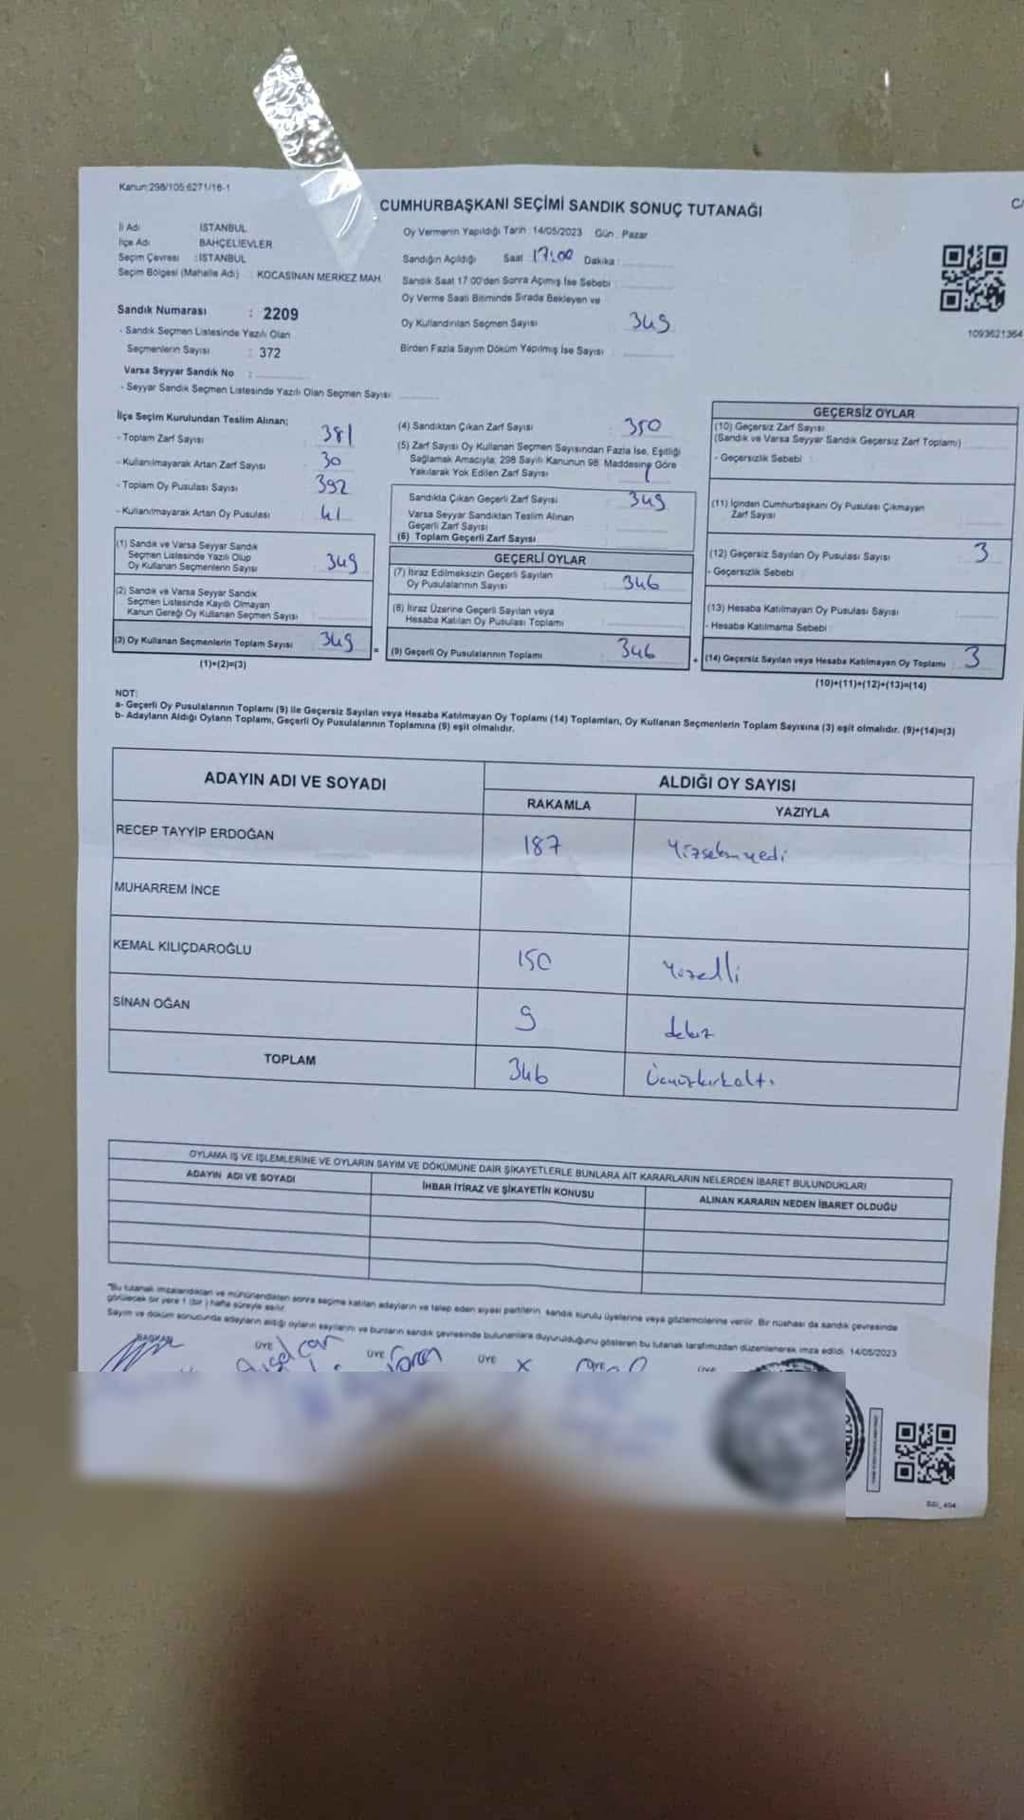 Kanun:298/105 6271/16-1
CUMHURBAŞKANI SEÇİMİ SANDIK SONUÇ TUTANAĞI
C/
İl Adı : İSTANBUL
İlçe Adı : BAHÇELİEVLER
Seçim Çevresi : İSTANBUL
Seçim Bölgesi (Mahalle Adı) : KOCASİNAN MERKEZ MAH
Oy Vermenin Yapıldığı Tarih : 14/05/2023 Gün : Pazar
Sandığın Açıldığı Saat 17:00 Dakika :
Sandık Saat 17:00'den Sonra Açılmış İse Sebebi :
Oy Verme Saati Bitiminde Sırada Bekleyen ve
Oy Kullandırılan Seçmen Sayısı 349
Birden Fazla Sayım Döküm Yapılmış İse Sayısı :
1093621364
Sandık Numarası : 2209
- Sandık Seçmen Listesinde Yazılı Olan
Seçmenlerin Sayısı : 372
Varsa Seyyar Sandık No :
- Seyyar Sandık Seçmen Listesinde Yazılı Olan Seçmen Sayısı :
İlçe Seçim Kurulundan Teslim Alınan;
- Toplam Zarf Sayısı 381
- Kullanılmayarak Artan Zarf Sayısı 30
- Toplam Oy Pusulası Sayısı 392
- Kullanılmayarak Artan Oy Pusulası 41
(1) Sandık ve Varsa Seyyar Sandık
Seçmen Listesinde Yazılı Olup
Oy Kullanan Seçmenlerin Sayısı 349
(2) Sandık ve Varsa Seyyar Sandık
Seçmen Listesinde Kayıtlı Olmayan
Kanun Gereği Oy Kullanan Seçmen Sayısı
(3) Oy Kullanan Seçmenlerin Toplam Sayısı 349 =
(1)+(2)=(3)
(4) Sandıktan Çıkan Zarf Sayısı 350
(5) Zarf Sayısı Oy Kullanan Seçmen Sayısından Fazla İse, Eşitliği
Sağlamak Amacıyla; 298 Sayılı Kanunun 98. Maddesine Göre
Yakılarak Yok Edilen Zarf Sayısı 1
Sandıkta Çıkan Geçerli Zarf Sayısı 349
Varsa Seyyar Sandıktan Teslim Alınan
Geçerli Zarf Sayısı
(6) Toplam Geçerli Zarf Sayısı
GEÇERLİ OYLAR
(7) İtiraz Edilmeksizin Geçerli Sayılan
Oy Pusulalarının Sayısı 346
(8) İtiraz Üzerine Geçerli Sayılan veya
Hesaba Katılan Oy Pusulası Toplamı
(9) Geçerli Oy Pusulalarının Toplamı 346 +
GEÇERSİZ OYLAR
(10) Geçersiz Zarf Sayısı
(Sandık ve Varsa Seyyar Sandık Geçersiz Zarf Toplamı)
- Geçersizlik Sebebi :
(11) İçinden Cumhurbaşkanı Oy Pusulası Çıkmayan
Zarf Sayısı
(12) Geçersiz Sayılan Oy Pusulası Sayısı 3
- Geçersizlik Sebebi
(13) Hesaba Katılmayan Oy Pusulası Sayısı
- Hesaba Katılmama Sebebi
(14) Geçersiz Sayılan veya Hesaba Katılmayan Oy Toplamı 3
(10)+(11)+(12)+(13)=(14)
NOT:
a- Geçerli Oy Pusulalarının Toplamı (9) ile Geçersiz Sayılan veya Hesaba Katılmayan Oy Toplamı (14) Toplamları, Oy Kullanan Seçmenlerin Toplam Sayısına (3) eşit olmalıdır. (9)+(14)=(3)
b- Adayların Aldığı Oyların Toplamı, Geçerli Oy Pusulalarının Toplamına (9) eşit olmalıdır.
ADAYIN ADI VE SOYADI
ALDIĞI OY SAYISI
RAKAMLA YAZIYLA
RECEP TAYYİP ERDOĞAN 187 Yüzseksenyedi
MUHARREM İNCE
KEMAL KILIÇDAROĞLU 150 Yüzelli
SİNAN OĞAN 9 dokuz
TOPLAM 346 Üçyüzkırkaltı
OYLAMA İŞ VE İŞLEMLERİNE VE OYLARIN SAYIM VE DÖKÜMÜNE DAİR ŞİKAYETLERLE BUNLARA AİT KARARLARIN NELERDEN İBARET BULUNDUKLARI
ADAYIN ADI VE SOYADI
İHBAR İTİRAZ VE ŞİKAYETİN KONUSU
ALINAN KARARIN NEDEN İBARET OLDUĞU
"Bu tutanak imzalandıktan ve mühürlendikten sonra seçime katılan adayların ve talep eden siyasi partilerin sandık kurulu üyelerine veya gözlemcilerine verilir. Bir nüshası da sandık çevresinde
görülecek bir yere 1 (bir) hafta süreyle asılır.
Sayım ve döküm sonucunda adayların aldığı oyların sayılarını ve bunların sandık çevresinde bulunanlara duyurulduğunu gösteren bu tutanak tarafımızdan düzenlenerek imza edildi. 14/05/2023
BAŞKAN ÜYE ÜYE ÜYE ÜYE ÜYE